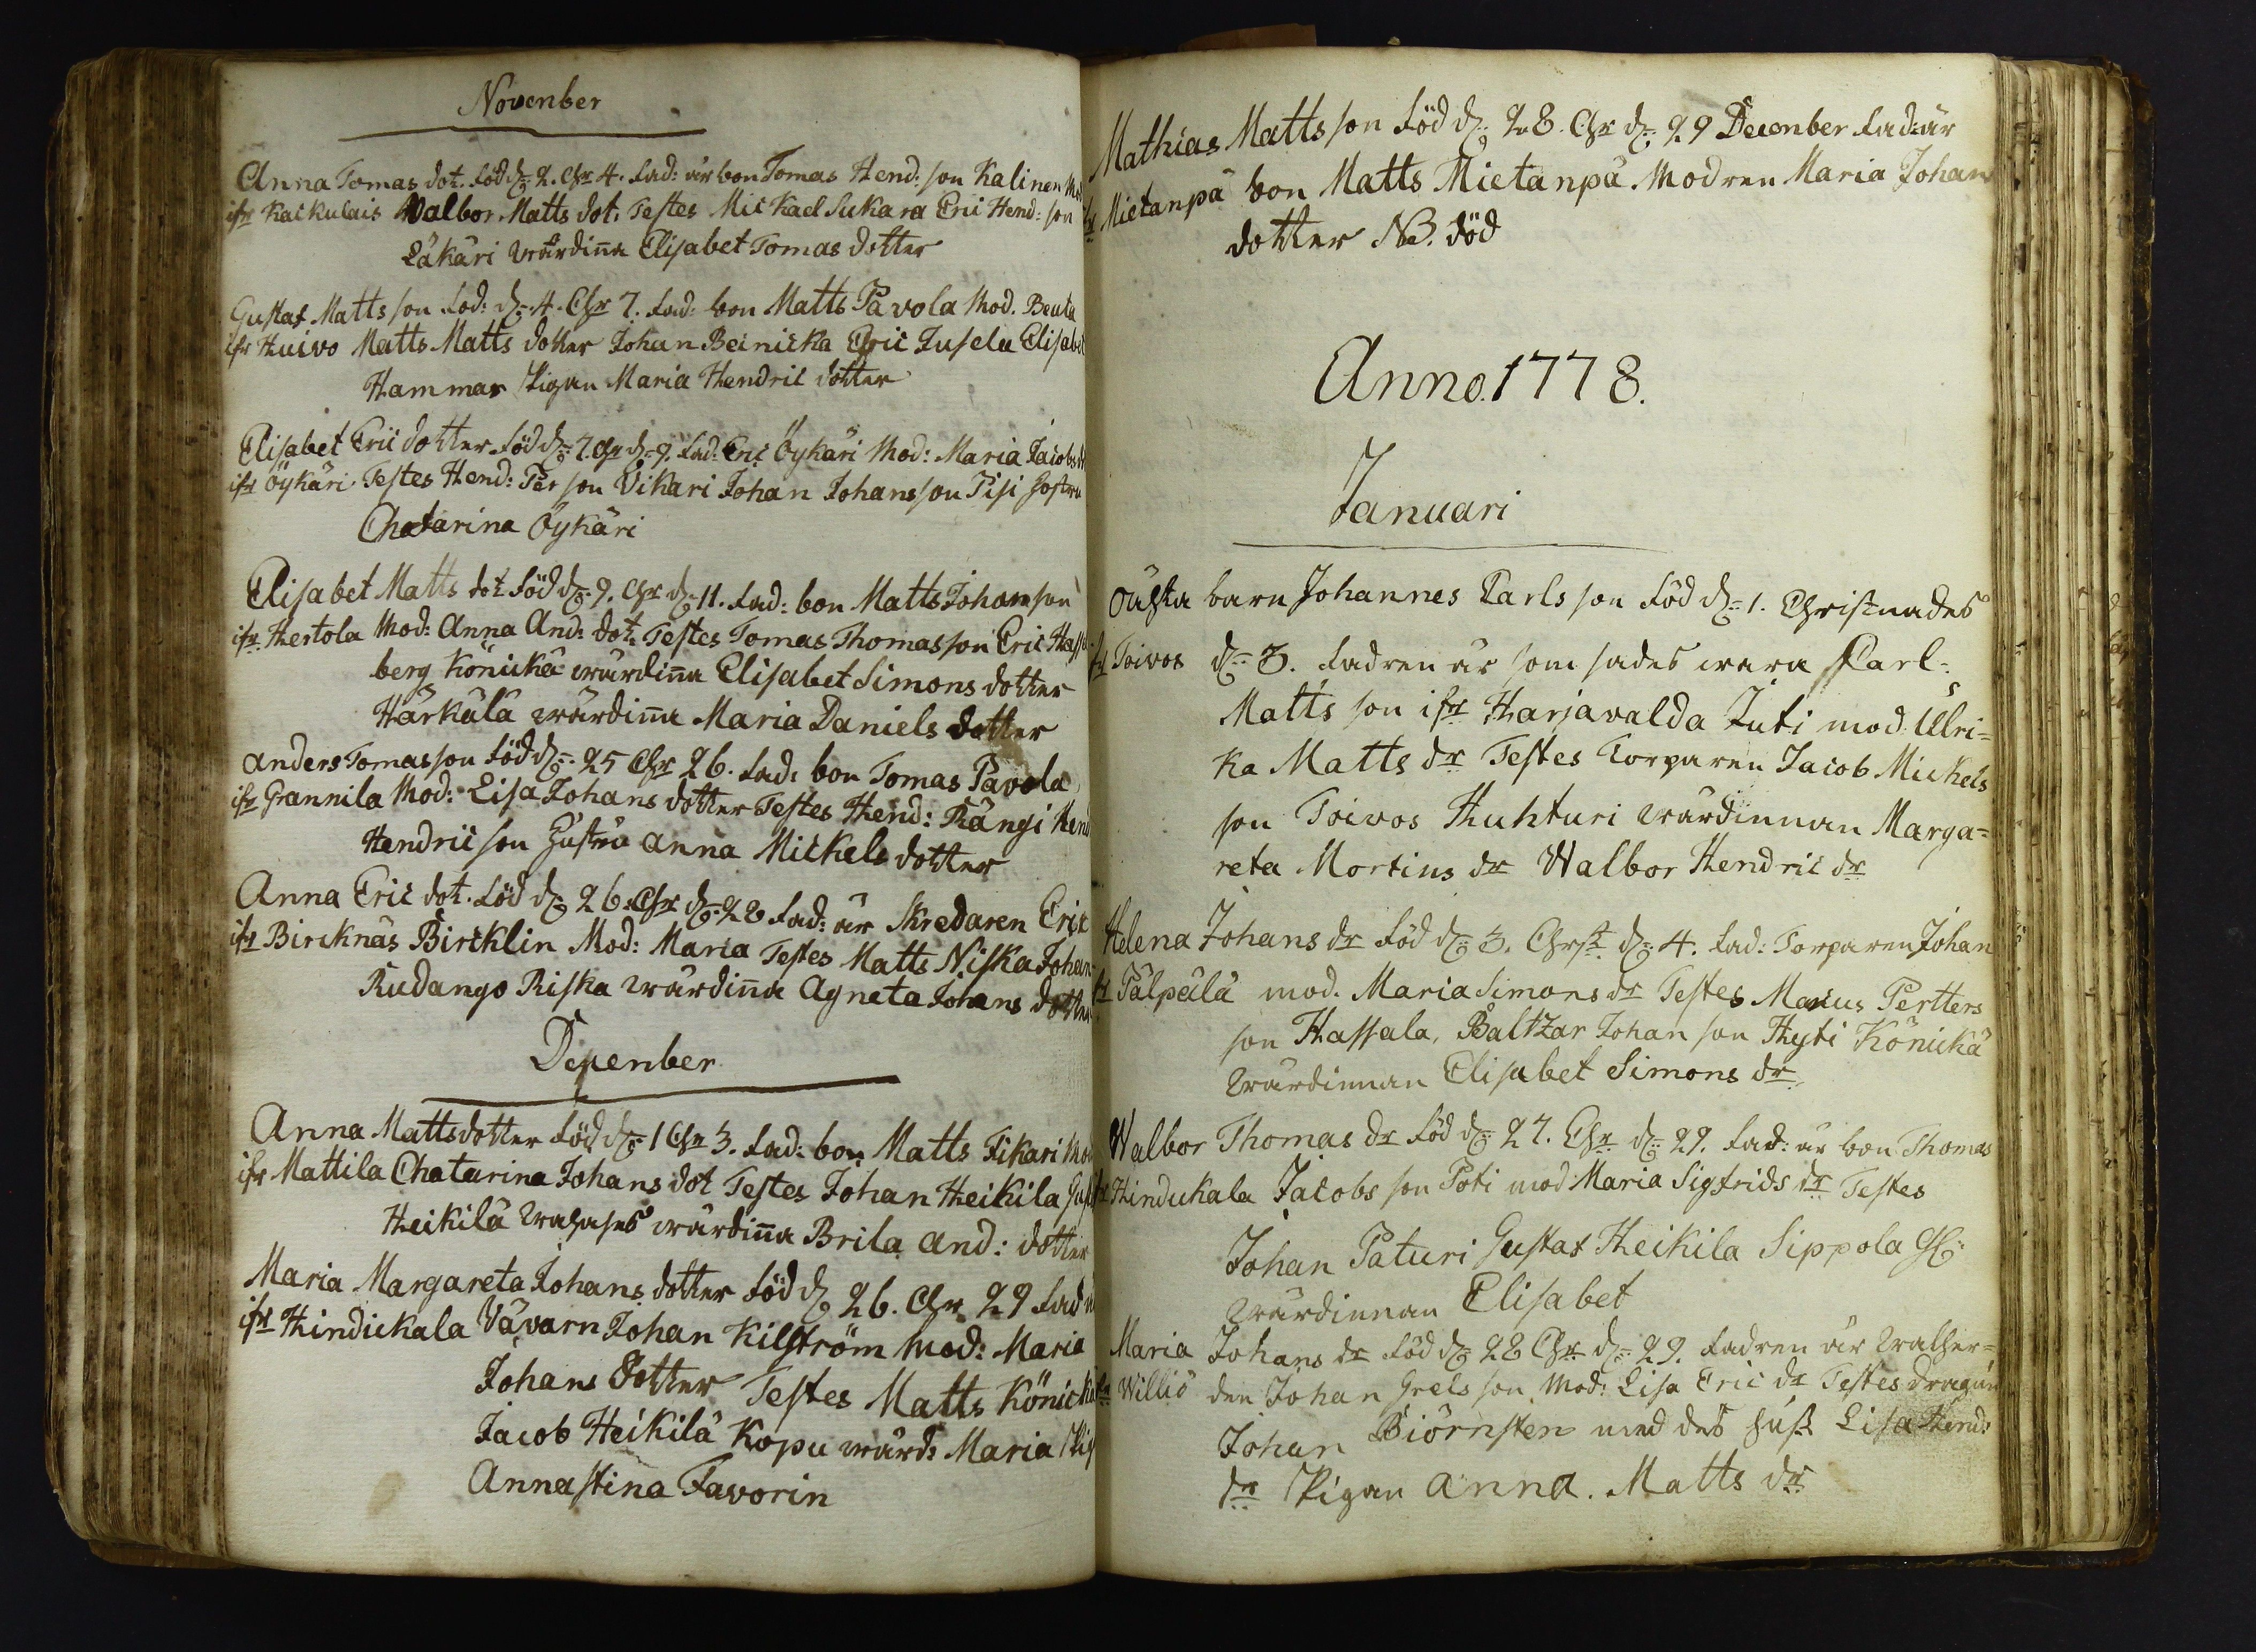 November
Anna Tomas dot. född d: 2. Chr 4. fad: är bon Tomas Hend: son Kalinen Mod
ifr Kaikulais Walbor Matts dot. Testes Mickael Sukara Eric Hend: son
Läkäri wärdinna Elisabet Tomas dotter
Gustaf Matts son föd: d: 4. Chr 7. fad: bon Matts Pavola Mod. Beata
ifr Huivo Matts Matts dotter Johan Beinicka Eric Jusela Elisabet
Hammar Pigan Maria Hendric dotter
Elisabet Eric dotter född d: 7. Chr d: 9. fad: Eric Öykäri Mod: Maria Jacobs dr
ifr Öykäri. Testes Hend: Per son Vikari Johan Johansson Pisi hustru
Chatarina Öykäri
Elisabet Matts dot född d: 9. Chr d: 11. fad: bon Matts Johanson
ifr Hertola Mod: Anna And: dot. Testes Tomas Thomasson Eric
berg Könickä wärdinna Elisabet Simons dotter
Härkälä wärdinna Maria Daniels dotter
Anders Tomasson född d: 25 Chr 26. fad: bon Tomas Pavola
ifr Grannila Mod: Lisa Johans dotter Testes Hend: Rångi Hend
Hendric son hustru Anna Mickels dotter
Anna Eric dot. föd d: 26. Chr d: 28 fad: är Skredaren Eric
ifr Bircknäs Bircklin Mod: Maria Testes Matts Niska Johan
Rudango Riska wärdinna Agneta Johans dotter
December
Anna Mattsdotter född d: 1 Chr 3. fad: bon Matts Fikari Mod
ifr Mattila Chatarina Johans dot Testes Johan Heikila Gust
Heikilä wärdinna Brila And: dotter
Maria Margareta Johans dotter född d: 26. Chr 29 fad
ifr Hindickala Vävarn Johan Kilström Mod: Maria
Johans dotter Testes Matts Könicka
Jacob Heikilä Kopu wärd: Maria Pig
Annastina Favorin
Mathias Matts son född d: 28. Chr d: 29 December fad: är
ifr Mietanpä bon Matts Mietanpä Modren Maria Johans
dotter NB. död
Anno. 1778.
Januari
Oächta barn Johannes Carls son född d: 1. Christnades
ifr Toivos d: 3. fadren är som sades wara Carl
Matts son ifr Harjavalda Juti mod Ulri=
ka Matts dr Testes torparen Jacob Mickels
son Toivos Huhturi wärdinnan Marga=
reta Mortins dr Walbor Hendric dr
Helena Johans dr född d: 3. Christ d: 4. fad: Torparen Johan
ifr Pälpälä mod. Maria Simons dr Testes Marcus Pertters
son Hassala, Baltzar Johan son Hyti Könickä
wärdinnan Elisabet Simons dr
Walbor Thomas dr född d: 27. Chr d: 29. fad: är bon Thomas
ifr Hindukala Jacobs son Poti mod: Maria Sigfrids dr Testes
Johan Paturi Gustaf Heikila Sippola Gl:
wärdinnan Elisabet
Maria Johans dr född d: 28 Chr d: 29. fadren är Walher=
ifr Williö den Johan Grels son Mod: Lisa Eric dr Testes dragun
Johan Biörnsten med des hust Lisa Hend:
dr Pigan Anna. Matts dr